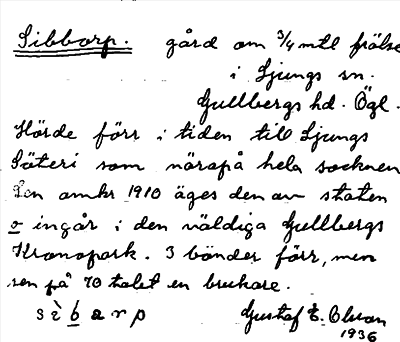 Sibborp. gård om 3/4 mtl frälse
i Ljungs sn.
Gullbergs hd. Ögl.
Hörde förr i tiden till Ljungs
Säteri som närapå hela socknen
Sen omkr 1910 äges den av staten
o ingår i den väldiga Gullbergs
Kronopark. 3 bönder förr, men
sen på 70 talet en brukare.
sìbarp Gustaf E. Olson
1936